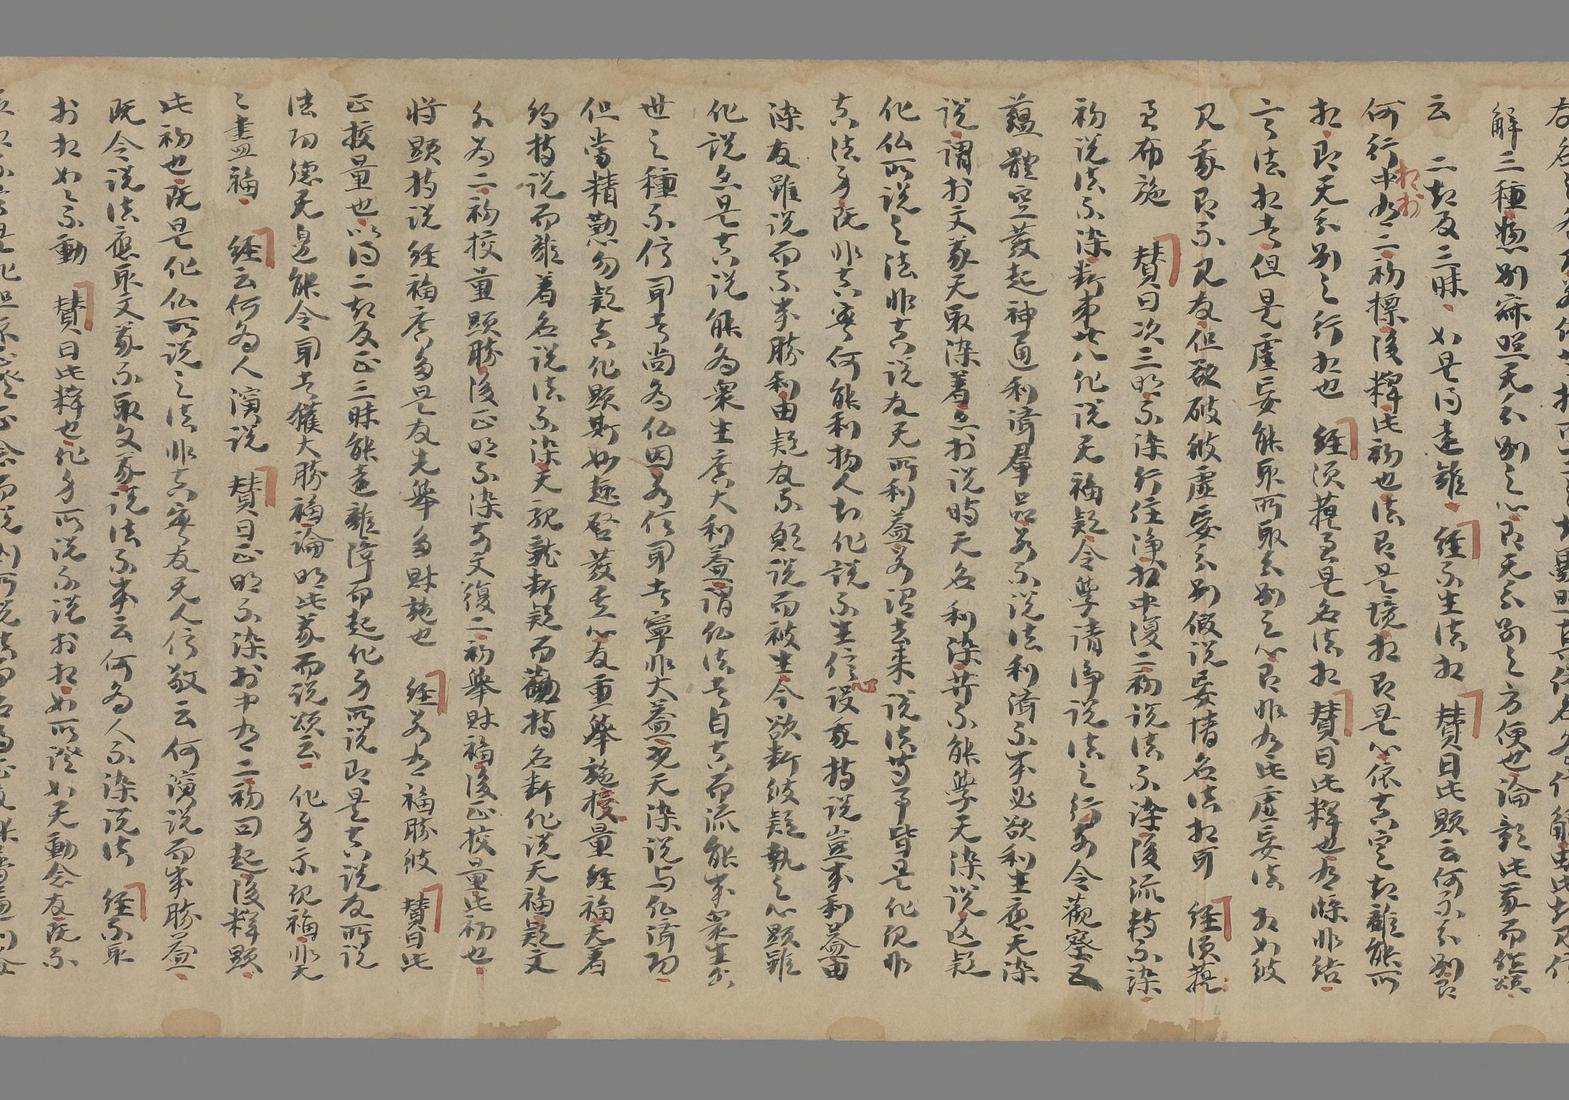 解三種惣別寂照无分別之心即无分別之方便也論彰此義而結頌
云 二相及三昧 如是得遠離 經不生法相 賛曰此顯云何不分別
何行中有二初標後釋此初也法即是境相即是心依真定相離能所
相即无分別之行相也 經須菩至是名法相 賛曰此釋也有牒非結
言法相者但是虛妄能取所取分別之心即非有此虛妄法相如彼
見我即不見及但欲破彼虛妄分別假說妄情名法相耳 經須菩
至布施 賛曰次三明不染行住淨於中復二初說法不染後流轉不染
初說法不染斷第廿八化說无福疑令學諸佛說法之行前令觀察五
蘊體空發起神通利濟羣品若不說法利濟不成必欲利生應无染
說謂於文義无取染著且於說時无名利染若不能學无染說返疑
化仏所說之法非真說友无所利益若謂去來說法等事皆是化現非
真法身既非真實何能利物人於化說不生信心設我持說豈成利益由
染友雖說而不成勝利由疑友不能說而被生今欲斷彼疑執之心顯雖
化說亦是真說能為衆生廣大利益謂仏法者自真而流能成衆生出
世之種不信聞者尚為仏因若信聞者寧非大益况无染說与仏濟功
但當精懃勿疑真化顯斯妙趣啓發其心友重舉施挍量經福无著
約持說而彰着名說法不染天親就斷疑而勸持名斷化說无福疑文
分為二初挍量顯勝後正明不染前文復二初舉財福後正挍量此初也
將顯持說經福廣多是友先舉多財施也 經若有福勝彼 賛曰此
正挍量也以得二相及正三昧能遠離障而起化身所說即是真說友所說
法功德无邊能令聞者獲大勝福論明此義而說頌云 化身示現福非无
之盡福 經云何為人演說 賛曰正明不染於中有二初問起後釋顯
此初也既是化仏所說之法非真實友无人信敬云何演說而成勝益
既令說法應取文義不取文義說法不成云何為人不染說法 經不取
於相如如不動 賛曰此釋也化身所說不說於相如所證如无動念友既不